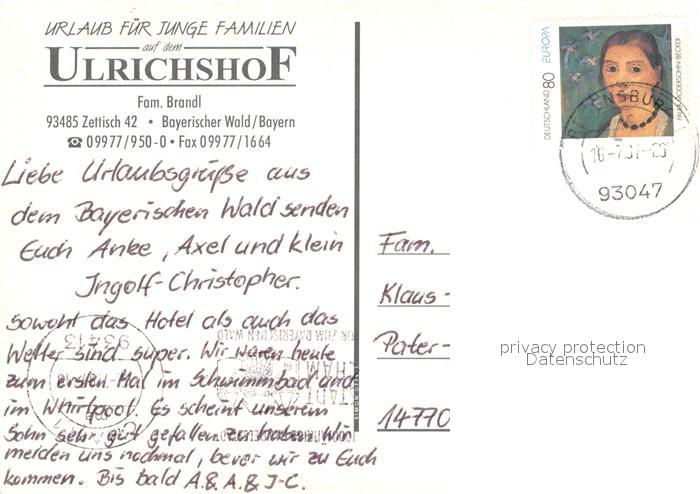 URLAUB FÜR JUNGE FAMILIEN
auf dem
ULRICHSHOF
Fam. Brandl
93485 Zettisch 42 • Bayerischer Wald/Bayern
☎ 09977/950-0 • Fax 09977/1664
Liebe Urlaubsgrüße aus
dem Bayerischen Wald senden
Euch Anke, Axel und klein
Ingolf-Christopher.
Sowohl das Hotel als auch das
Wetter sind super. Wir waren heute
zum ersten Mal im Schwimmbad und
im Whirlpool. Es scheint unserem
Sohn sehr gut gefallen zu haben. Wir
melden uns nochmal, bevor wir zu Euch
kommen. Bis bald A. & A. & I-C.
93413
CHAM
STADT
TOR ZUM BAYERISCHEN WALD
DEUTSCHLAND 80 EUROPA
PAULA MODERSOHN-BECKER
REGENSBURG
93047
Fam.
Klaus-
Pater-
14770
privacy protection
Datenschutz